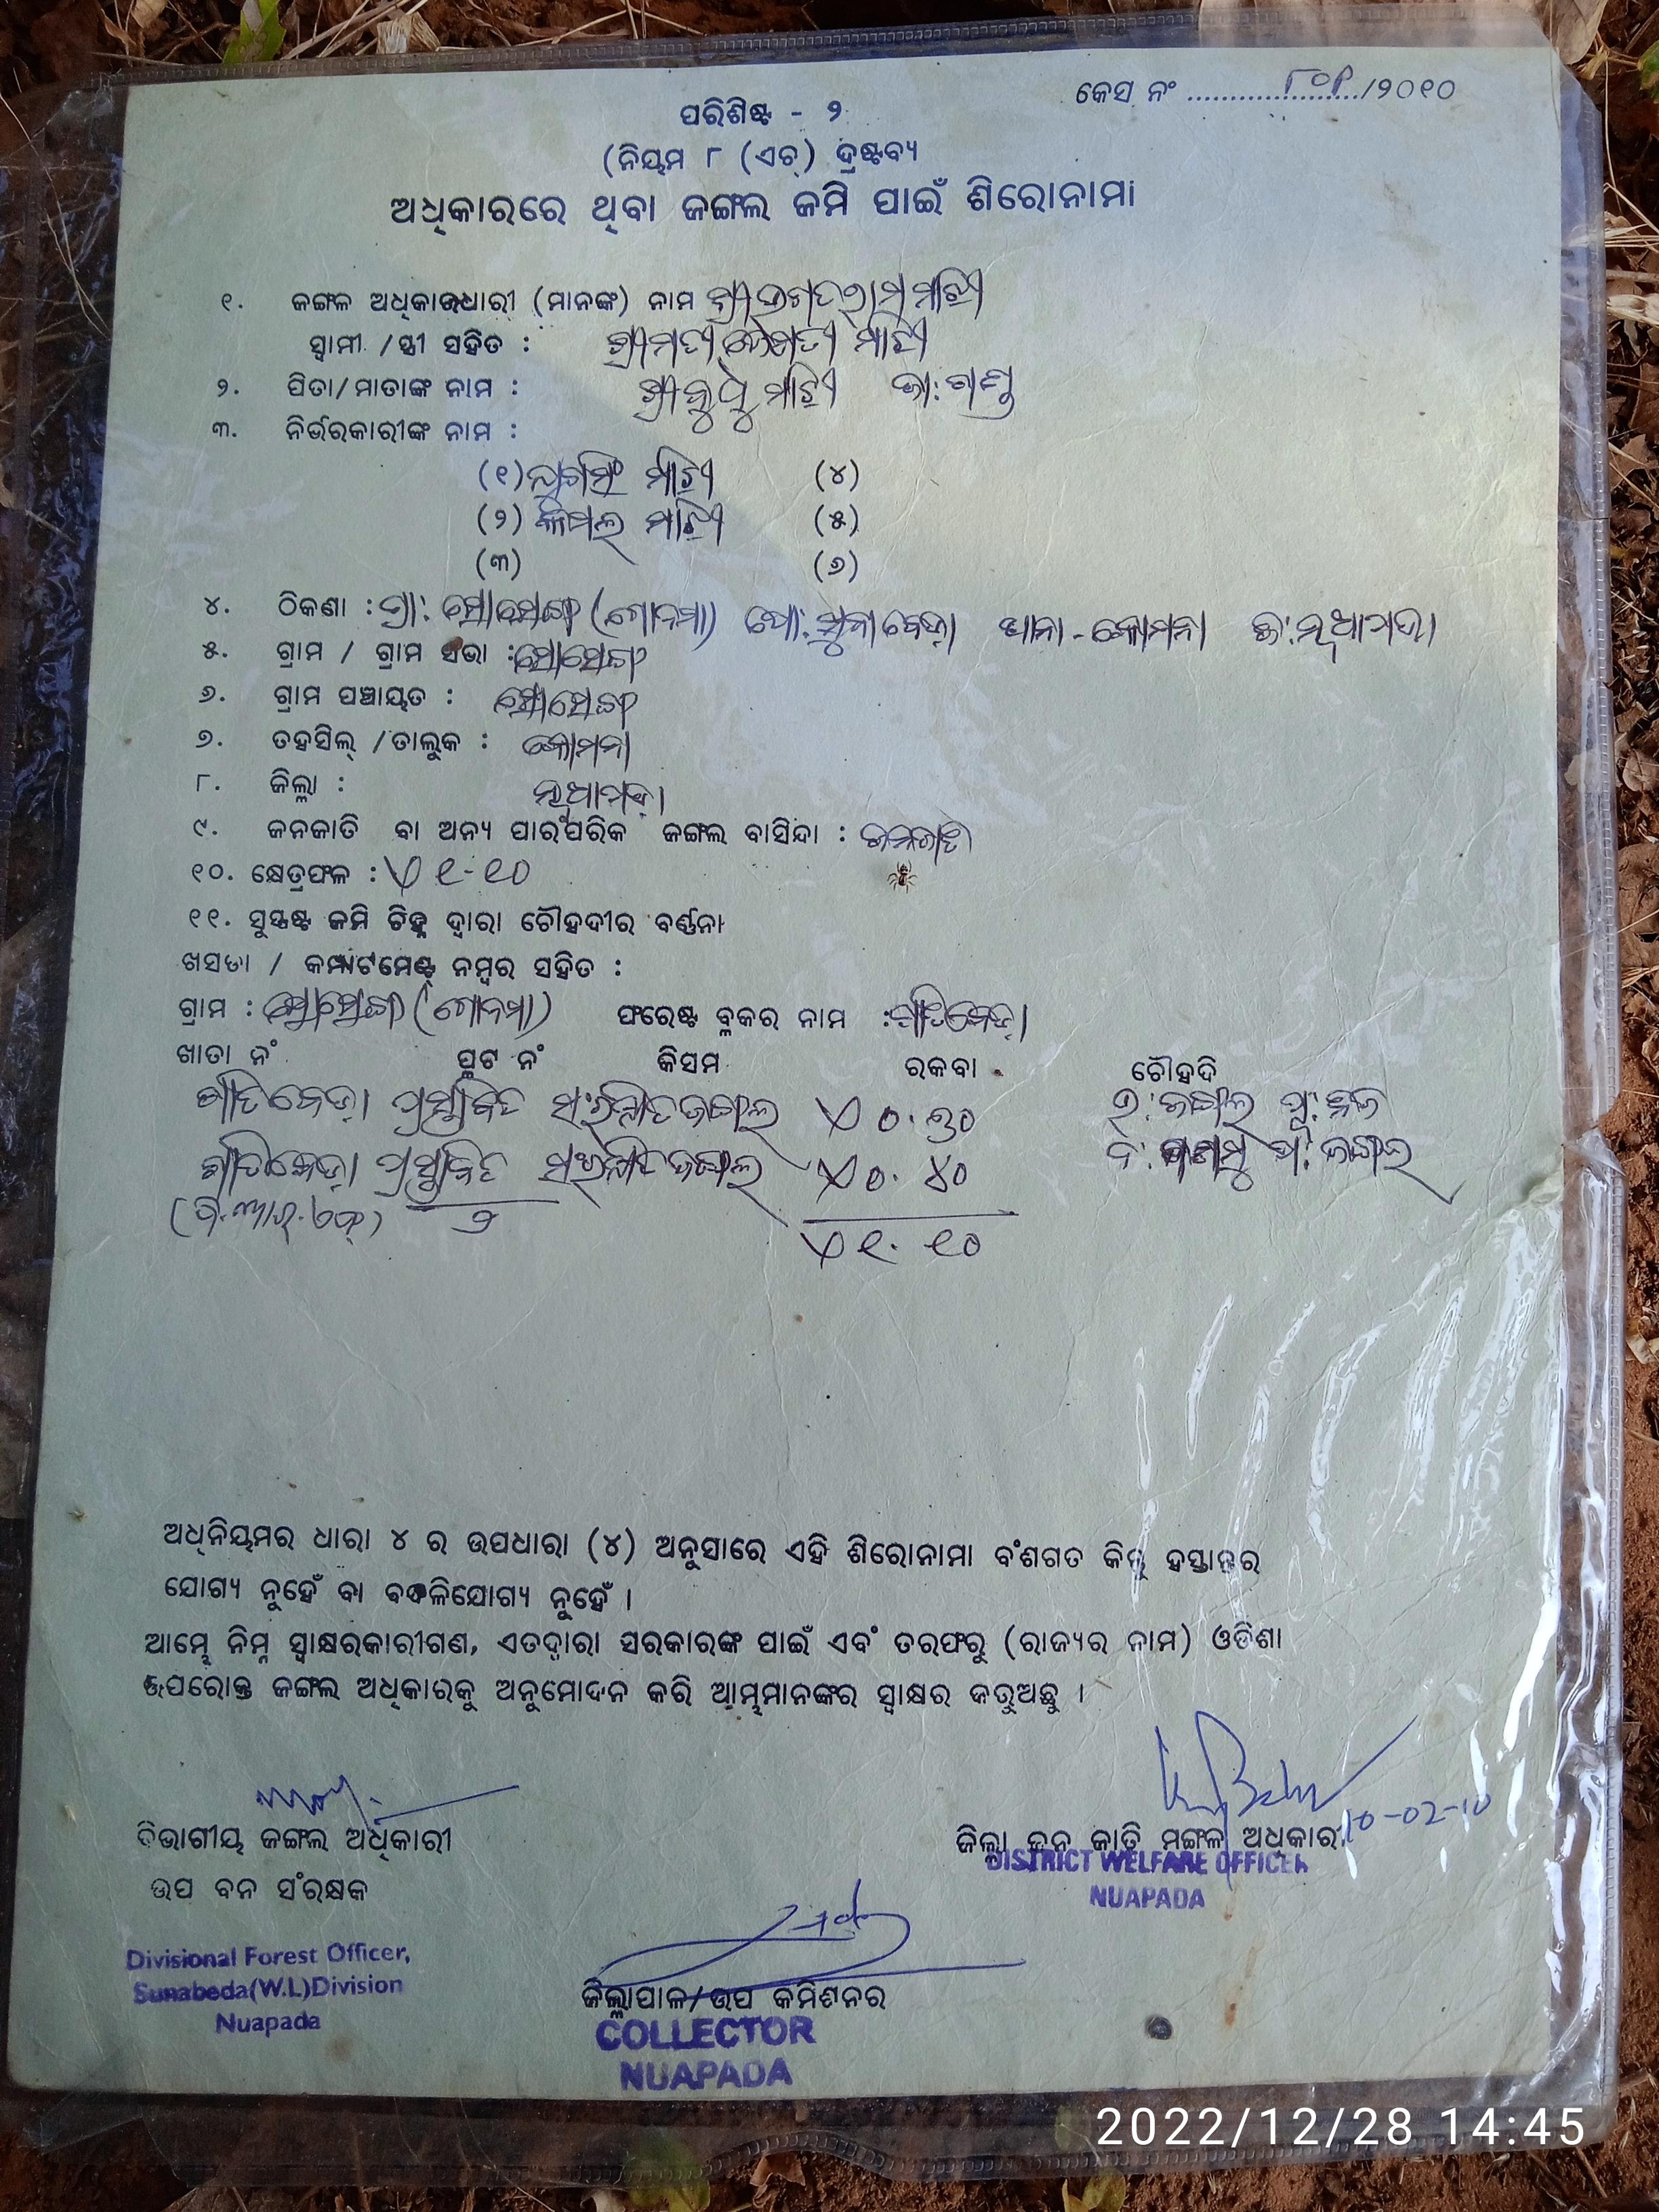 କେସ ନଂ ................/୨୦୧୦
ପରିଶିଷ୍ଟ - ୨
(ନିୟମ ୮ (ଏଚ୍) ଦ୍ରଷ୍ଟବ୍ୟ
ଅଧିକାରରେ ଥିବା ଜଙ୍ଗଲ ଜମି ପାଇଁ ଶିରୋନାମା
୧. ଜଙ୍ଗଳ ଅଧିକାରଧାରୀ (ମାନଙ୍କ) ନାମ ଶ୍ରୀ ଭଗତରାମ ମାଝୀ
ସ୍ୱାମୀ / ସ୍ତ୍ରୀ ସହିତ : ଶ୍ରୀମତୀ ମାଝୀ
୨. ପିତା/ମାତାଙ୍କ ନାମ : ଶ୍ରୀ ବୁଧୁ ମାଝୀ ଜା: ଗଣ୍ଡ
୩. ନିର୍ଭରକାରୀଙ୍କ ନାମ :
(୧) ମାଝୀ (୪)
(୨) କମଲ ମାଝୀ (୫)
(୩) (୬)
୪. ଠିକଣା : ଗ୍ରା: ସୋସେଙ୍ଗ ପୋ: ସୁନାବେଡ଼ା ଥାନା - କୋମନା ଜି: ନୂଆପଡା
୫. ଗ୍ରାମ / ଗ୍ରାମ ସଭା : ସୋସେଙ୍ଗ
୬. ଗ୍ରାମ ପଞ୍ଚାୟତ : ସୋସେଙ୍ଗ
୭. ତହସିଲ୍ /ତାଲୁକ : କୋମନା
୮. ଜିଲ୍ଲା : ନୂଆପଡ଼ା
୯. ଜନଜାତି ବା ଅନ୍ୟ ପାରଂପରିକ ଜଙ୍ଗଲ ବାସିନ୍ଦା : ଜନଜାତି
୧୦. କ୍ଷେତ୍ରଫଳ : ୧-୧୦
୧୧. ସୁସ୍ପଷ୍ଟ ଜମି ଚିହ୍ନ ଦ୍ୱାରା ଚୌହଦୀର ବର୍ଣ୍ଣନା
ଖସଡା / କମ୍ପାର୍ଟମେଣ୍ଟ ନମ୍ବର ସହିତ :
ଗ୍ରାମ : ସୋସେଙ୍ଗ ଫରେଷ୍ଟ ବ୍ଲକର ନାମ : ପାତିବେଡ଼ା
ଖାତା ନଂ ପ୍ଲଟ ନଂ କିସମ ରକବା ଚୌହଦି
ପାତିବେଡ଼ା ପ୍ରସ୍ତାବିତ ସଂରକ୍ଷିତ ଜଙ୍ଗଲ ୦.୭୦ ଉ: ଜଙ୍ଗଲ ପୂ:
ପାତିବେଡ଼ା ପ୍ରସ୍ତାବିତ ସଂରକ୍ଷିତ ଜଙ୍ଗଲ ୦.୪୦ ଦ: ପ: ଜଙ୍ଗଲ
(ପି.ଆର୍.ଏଫ୍) ୨ ୧.୧୦
ଅଧିନିୟମର ଧାରା ୪ ର ଉପଧାରା (୪) ଅନୁସାରେ ଏହି ଶିରୋନାମା ବଂଶଗତ କିନ୍ତୁ ହସ୍ତାନ୍ତର
ଯୋଗ୍ୟ ନୁହେଁ ବା ବଦଳିଯୋଗ୍ୟ ନୁହେଁ ।
ଆମ୍ଭେ ନିମ୍ନ ସ୍ୱାକ୍ଷରକାରୀଗଣ, ଏତଦ୍ୱାରା ସରକାରଙ୍କ ପାଇଁ ଏବଂ ତରଫରୁ (ରାଜ୍ୟର ନାମ) ଓଡିଶା
ଉପରୋକ୍ତ ଜଙ୍ଗଲ ଅଧିକାରକୁ ଅନୁମୋଦନ କରି ଆମ୍ଭମାନଙ୍କର ସ୍ୱାକ୍ଷର କରୁଅଛୁ ।
10-02-10
ବିଭାଗୀୟ ଜଙ୍ଗଲ ଅଧିକାରୀ ଜିଲ୍ଲା ଜନ ଜାତି ମଙ୍ଗଳ ଅଧିକାରୀ
ଉପ ବନ ସଂରକ୍ଷକ DISTRICT WELFARE OFFICER
NUAPADA
Divisional Forest Officer,
Sunabeda(W.L)Division
Nuapada
ଜିଲ୍ଲାପାଳ/ଉପ କମିଶନର
COLLECTOR
NUAPADA
2022/12/28 14:45